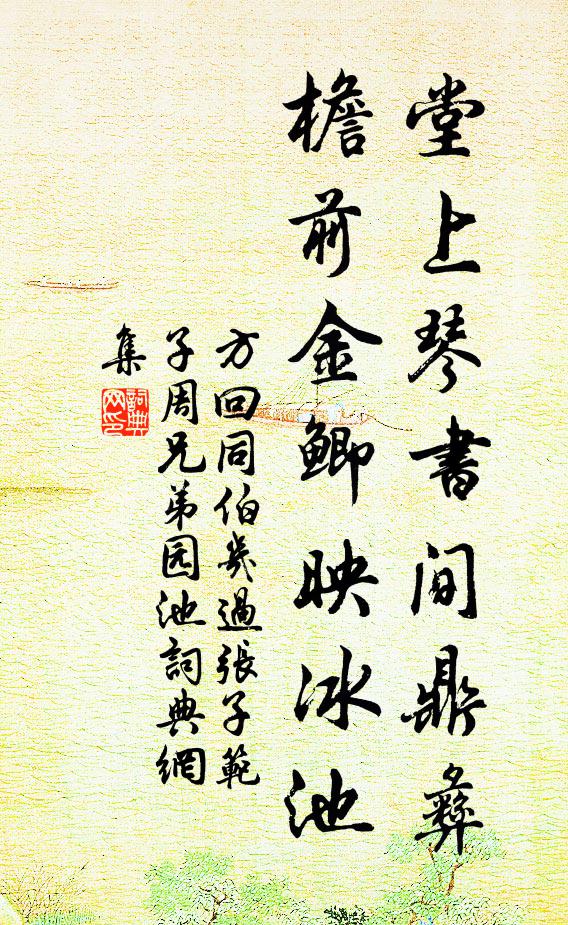 堂上琴書间鼎彝
檐前金鲫映冰池
方回同伯幾過張子範
子周兄弟园池詞典網
集
詞典
网印